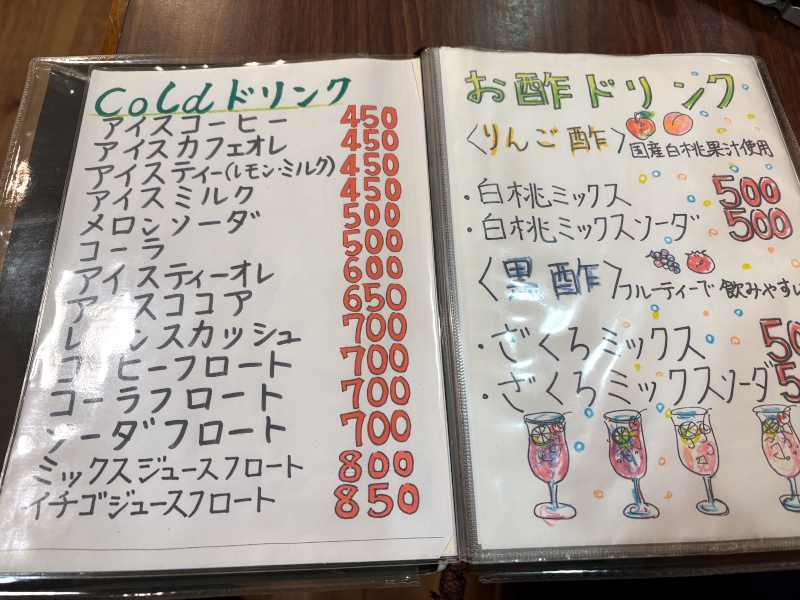 Coldドリンク
アイスコーヒー 450
アイスカフェオレ 450
アイスティー(レモン・ミルク) 450
アイスミルク 450
メロンソーダ 500
コーラ 500
アイスティーオレ 600
アイスココア 650
レモンスカッシュ 700
コーヒーフロート 700
コーラフロート 700
ソーダフロート 700
ミックスジュースフロート 800
イチゴジュースフロート 850
お酢ドリンク
〈りんご酢〉国産白桃果汁使用
・白桃ミックス 500
・白桃ミックスソーダ 500
〈黒酢〉フルーティーで飲みやすい
・ざくろミックス
・ざくろミックスソーダ